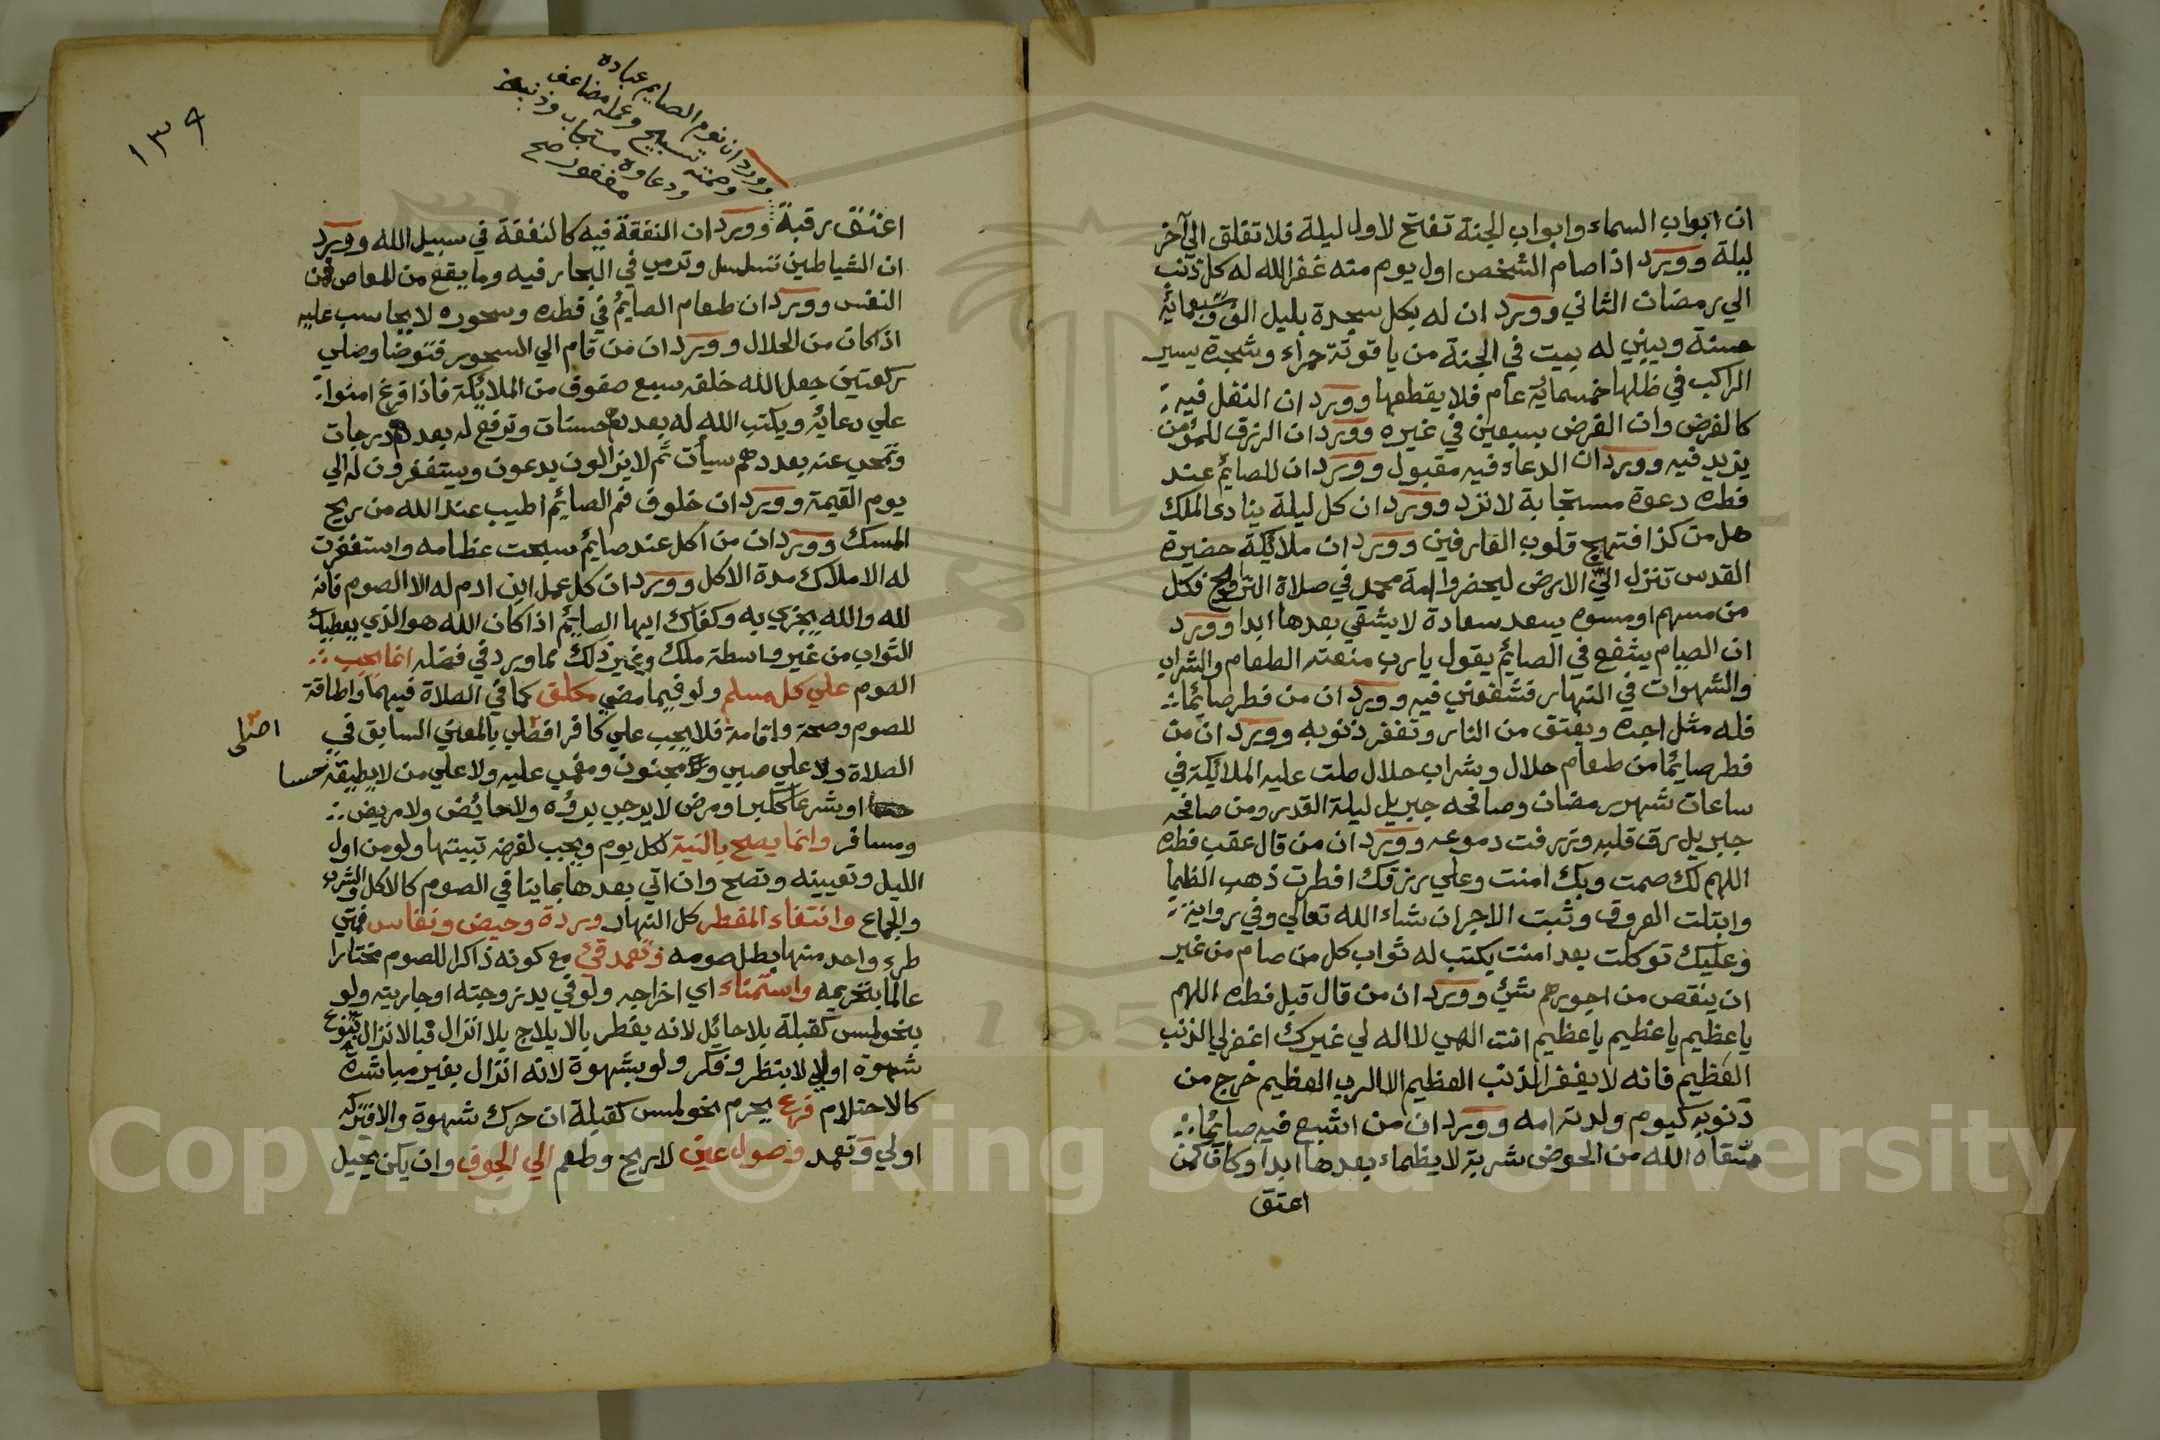 ان ابواب السماء وابواب الجنة تفتح لاول ليلة فلا تغلق الي آخر
ليلة وورد اذا صام الشخص اول يوم منه غفر الله له كل ذنب
الي رمضان الثاني وورد ان له بكل سجدة بليل الف وسبعمائة
حسنة ويبني له بيت في الجنة من ياقوتة حمراء وشجرة يسير
الراكب في ظلها خمسمائة عام فلا يقطعها وورد ان النفل فيه
كالفرض وان الفرض بسبعين في غيره وورد ان الرزق للمؤمن
يزيد فيه وورد ان الدعاء فيه مقبول وورد ان للصائم عند
فطره دعوة مستجابة لا ترد وورد ان كل ليلة ينادى الملك
هل من كذا فتبهج قلوب العارفين وورد ان ملائكة حضيرة
القدس تنزل الي الارض ليحضروا امة محمد في صلاة التراويح فكل
من مسهم او مسوه يسعد سعادة لا يشقي بعدها ابدا وورد
ان الصيام يشفع في الصائم يقول يا رب منعته الطعام والشراب
والشهوات في النهار فشفعني فيه وورد ان من فطر صائما
فله مثل اجره ويعتق من النار وتغفر ذنوبه وورد ان من
فطر صائما من طعام حلال وشراب حلال صلت عليه الملائكة في
ساعات شهر رمضان وصافحه جبريل ليلة القدر ومن صافحه
جبريل رق قلبه وزرفت دموعه وورد ان من قال عقب فطره
اللهم لك صمت وبك امنت وعلي رزقك افطرت ذهب الظما
وابتلت العروق وثبت الاجر ان شاء الله تعالي وفي رواية
وعليك توكلت بعد امنت يكتب له ثواب كل من صام من غير
ان ينقص من اجورهم شئ وورد ان من قال قبل فطره اللهم
يا عظيم يا عظيم يا عظيم انت الهي لا اله لي غيرك اغفر لي الذنب
العظيم فانه لا يغفر الذنب العظيم الا الرب العظيم خرج من
ذنوبه كيوم ولدته امه وورد ان من اشبع فيه صائما
سقاه الله من الحوض شربة لا يظماء بعدها ابدا وكان كمن
اعتق
١٣٩
وورد ان نوم الصايم عبادة
وصمته تسبيح وعمله مضاعف
ودعاوه مستجاب وذنبه
مغفور صح
اعتق رقبة وورد ان النفقة فيه كالنفقة في سبيل الله وورد
ان الشياطين تتسلسل وترمي في البحار فيه وما يقع من المعاص فمن
النفس وورد ان طعام الصايم في فطره وسحوره لا يحاسب عليه
اذا كان من الحلال وورد ان من قام الي السحور فتوضا وصلي
ركعتين جعل الله خلفه سبع صفوف من الملائكة فاذا فرغ امنوا
علي دعائه ويكتب الله له بعددهم حسنات وترفع له بعددهم درجات
وتمحي عنه بعددهم سيأت ثم لا يزالون يدعون ويستغفرون له الي
يوم القيمة وورد ان خلوف فم الصائم اطيب عند الله من ريح
المسك وورد ان من اكل عند صايم سبحت عظامه واستغفرت
له الاملاك مدة الاكل وورد ان كل عمل ابن ادم له الا الصوم فانه
لله والله يجزي به وكفاك ايها الصايم اذا كان الله هو الذي يعطيك
الثواب من غير واسطة ملك وغير ذلك مما ورد في فضله انما يجب
الصوم علي كل مسلم ولو فيما مضي مكلف كما في الصلاة فيهما واطاقة
للصوم وصحة واقامة فلا يجب علي كافر اصلي بالمعني السابق في
اصلي
الصلاة ولا علي صبي ولا مجنون ومغمي عليه ولا علي من لا يطيقه حسا
او شرعا لكبر او مرض لا يرجي برؤه ولا حائض ولا مريض
ومسافر وانما يصح بالنية لكل يوم ويجب لفرضه تبييتها ولو من اول
الليل وتعيينه وتصح وان اتي بعدها بما ينافي الصوم كالاكل والشرب
والجماع وانتفاء المفطر كل النهار وردة وحيض ونفاس فمتي
طرء واحد منها بطل صومه وتعمد قئ مع كونه ذاكرا للصوم مختارا
عالما بتحريمه واستمناء اي اخراجه ولو في يد زوجته او جاريته ولو
بنحو لمس كقبلة بلا حائل لانه يفطر بالايلاج بلا انزال فبالانزال بنوع
شهوة اولي لا بنظر وفكر ولو بشهوة لانه انزال بغير مباشرة
كالاحتلام فرع يحرم نحو لمس كقبلة ان حرك شهوة والا فتركه
اولي وتعمد وصول عين لا ريح وطعم الي الجوف وان يكن يحيل
Copyright © King Saud University
1957